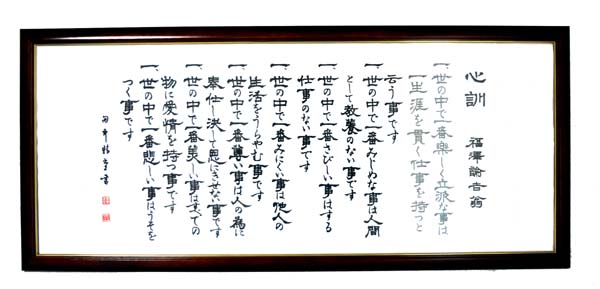 心訓　福澤諭吉翁
一、世の中で一番楽しく立派な事は
一生涯を貫く仕事を持つと
云う事です
一、世の中で一番みじめな事は人間
として教養のない事です
一、世の中で一番さびしい事はする
仕事のない事です
一、世の中で一番みにくい事は他人の
生活をうらやむ事です
一、世の中で一番尊い事は人の為に
奉仕し決して恩にきせない事です
一、世の中で一番美しい事はすべての
物に愛情を持つ事です
一、世の中で一番悲しい事はうそを
つく事です